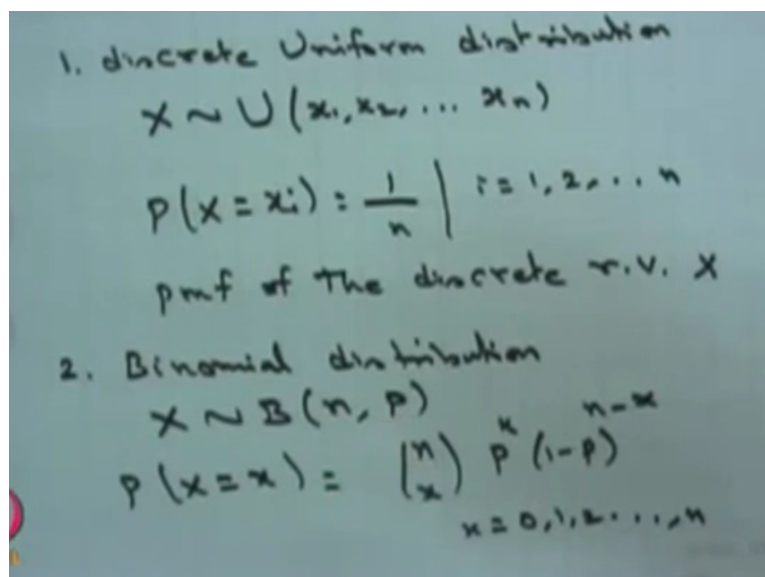 1. discrete Uniform distribution
X ~ U (x₁, x₂, ... xₙ)
P(X = xᵢ) = 1/n | i = 1, 2, .. n
pmf of the discrete r.v. X
2. Binomial distribution
X ~ B (n, p)
P (X = x) = (n x) p^x (1-p)^n-x
x = 0, 1, 2 ..., n